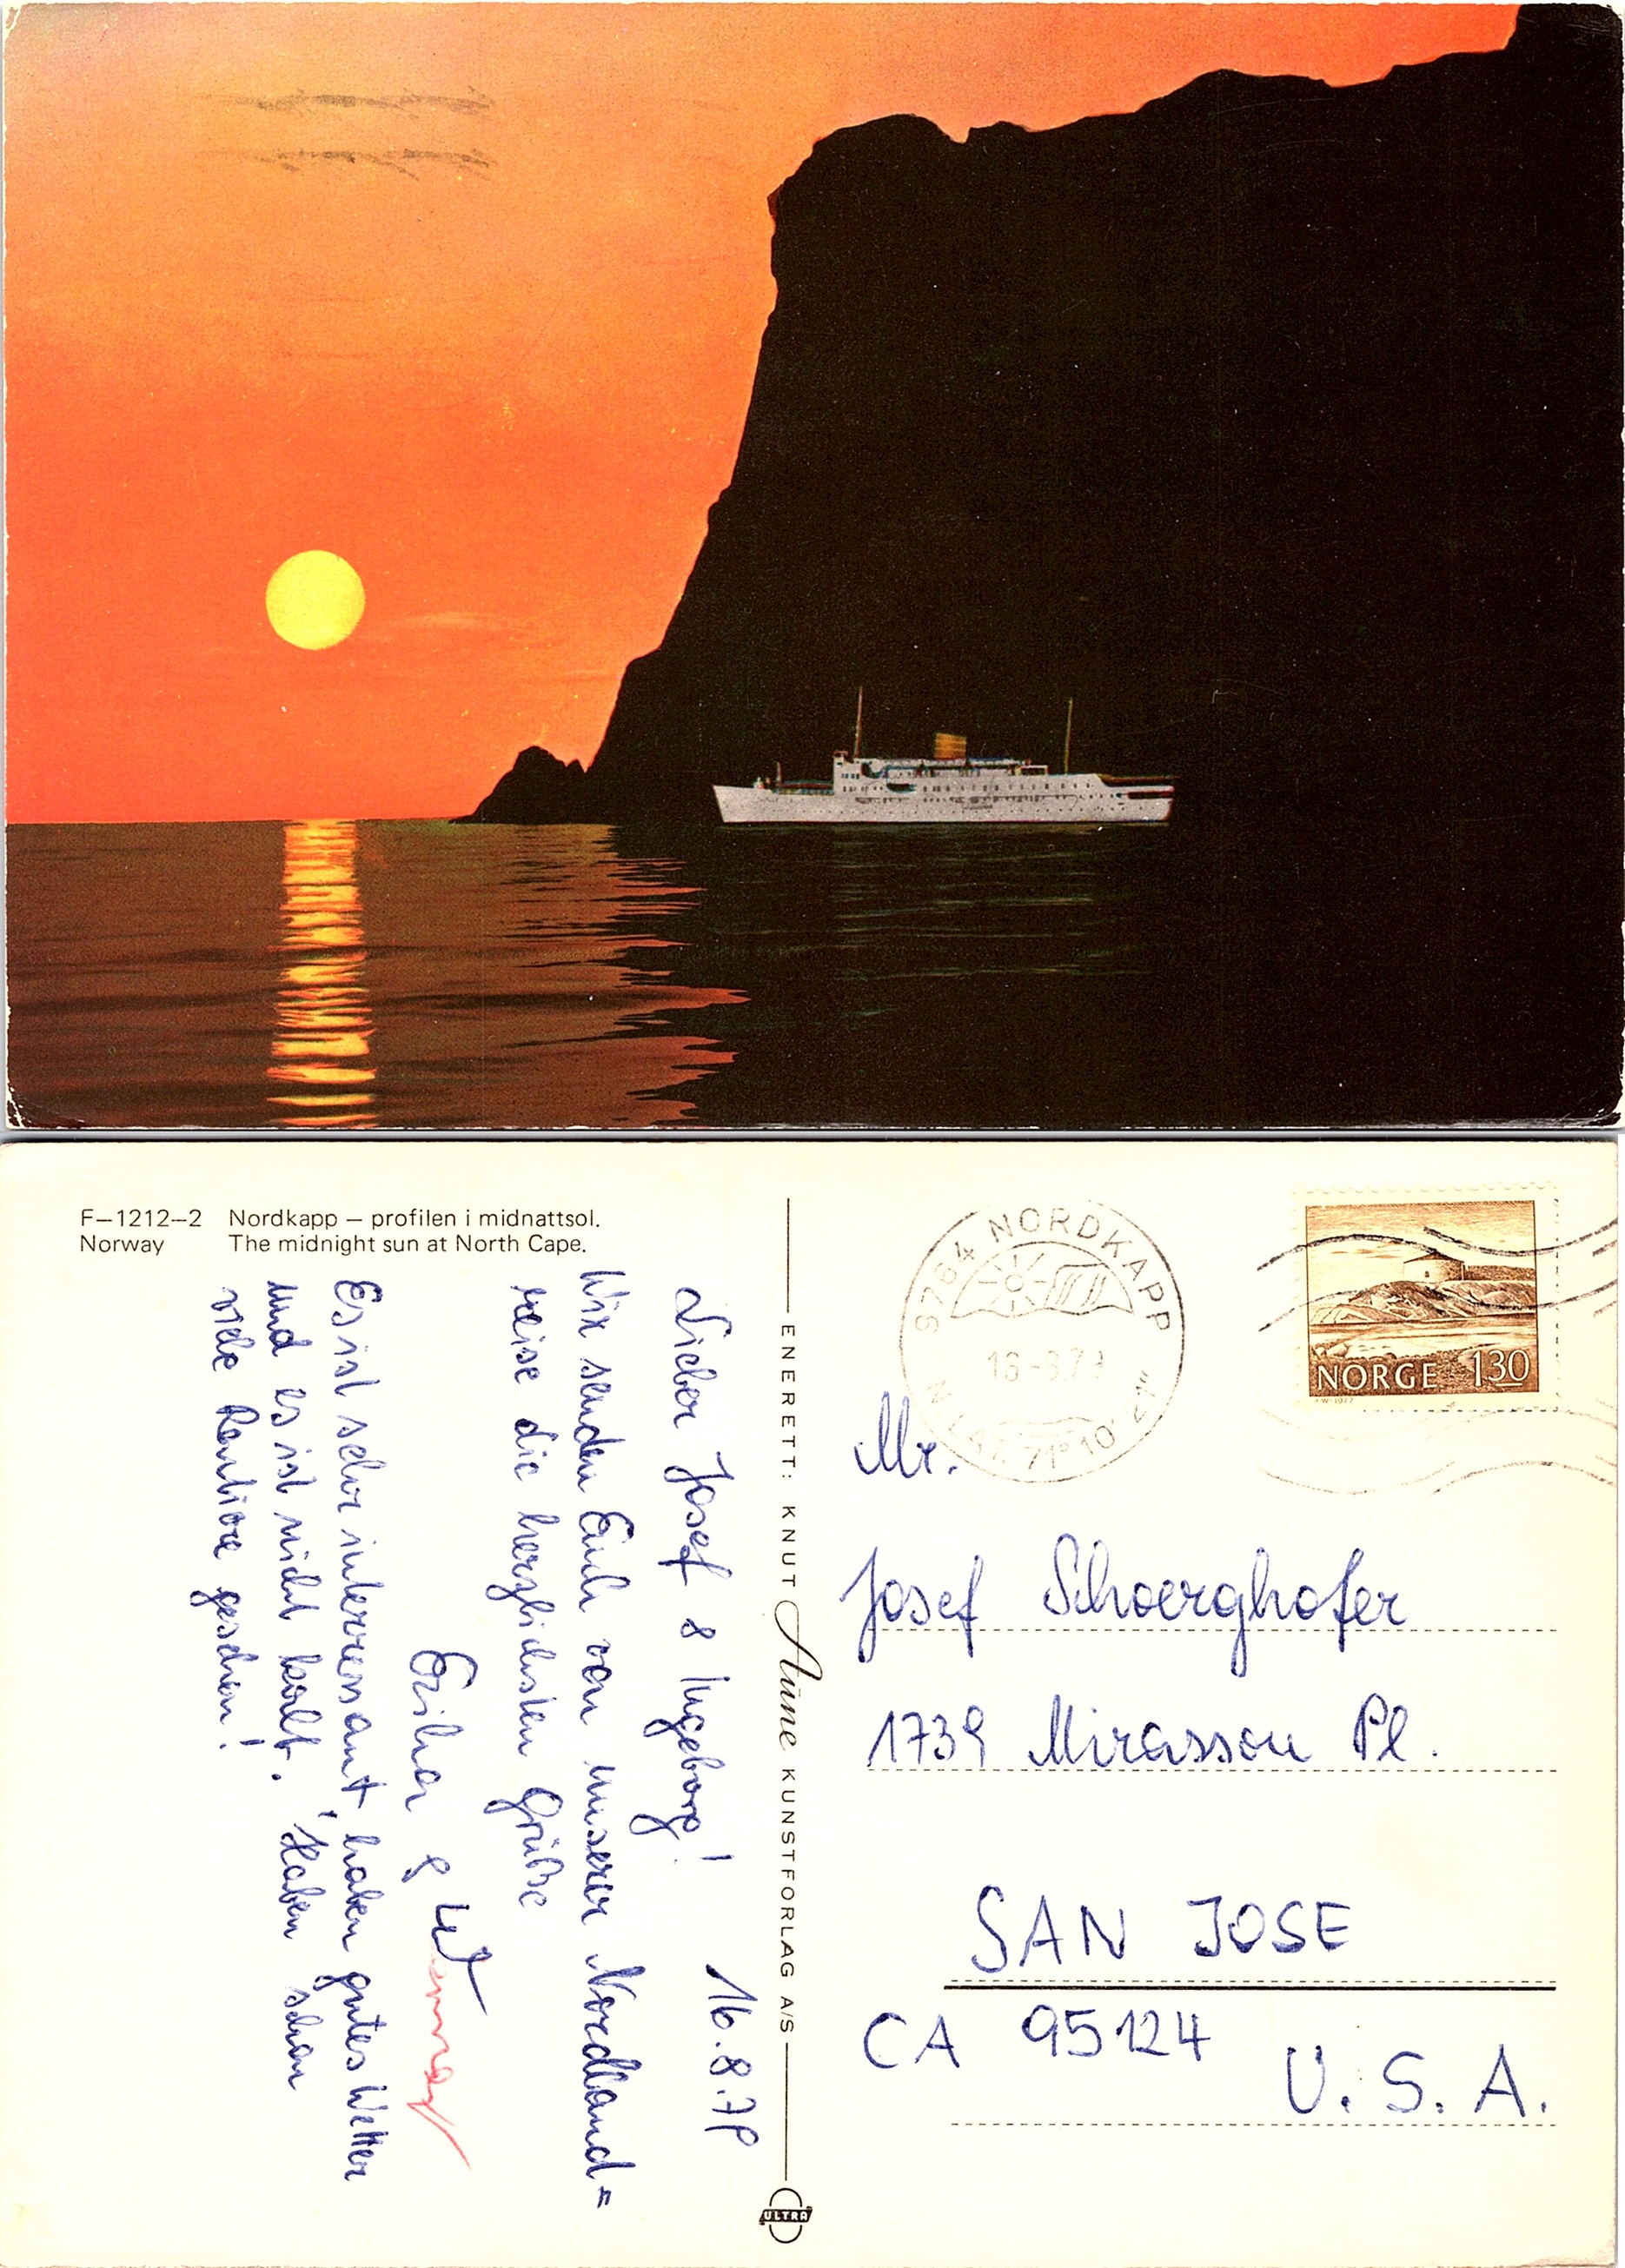 F–1212–2 Nordkapp – profilen i midnattsol.
Norway The midnight sun at North Cape.
16.8.79
Lieber Josef & Ingeborg!
Wir senden Euch von unserer Nordland=
reise die herzlichsten Grüße
Es ist sehr interressant, haben gutes Wetter
und es ist nicht kalt. Haben schon
viele Rentiere gesehen!
ENERETT: KNUT Aune KUNSTFORLAG A/S
ULTRA
9764 NORDKAPP
N. LAT. 71° 10' 21"
NORGE 130
Mr.
Josef Schoerghofer
1739 Mirasson Pl.
SAN JOSE
CA 95124
U.S.A.